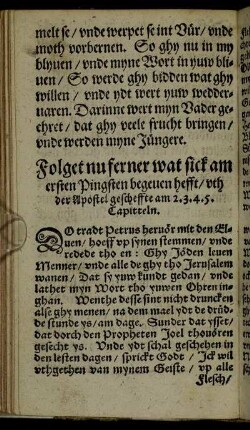 melt se / vnde werpet se int Vür / vnde
moth vorbernen. So ghy nu in my
blyuen / vnde myne Wort in yuw bli-
uen / So werde ghy bidden wat ghy
willen / vnde ydt wert yuw wedder-
uaren. Darinne wert myn Vader ge-
ehret / dat ghy veele frucht bringen /
vnde werden myne Jüngere.
Folget nu ferner wat sick am
ersten Pingsten begeuen hefft / vth
der Apostel gescheffte am 2. 3. 4. 5.
Capitteln.
DO tradt Petrus hervör mit den El-
uen / hoeff vp synen stemmen / vnde
redede tho en : Ghy Jöden leuen
Menner / vnde alle de ghy tho Jerusalem
wanen / Dat sy yuw kundt gedan / vnde
lathet myn Wort tho yuwen Ohren in-
ghan. Wenthe desse sint nicht druncken
alse ghy menen / na dem mael ydt de drüd-
de stunde ys / am dage. Sunder dat ysset /
dat dorch den Propheten Joel thouören
gesecht ys. Vnde ydt schal geschehen in
den lesten dagen / sprickt Godt / Ick wil
vthgethen van mynem Geiste / vp alle
Flesch /